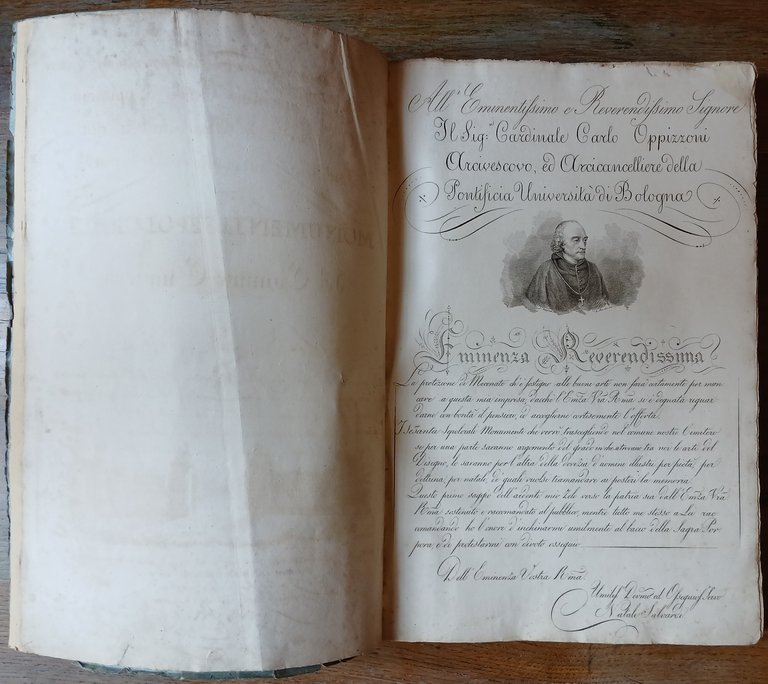 All' Eminentissimo e Reverendissimo Signore
Il Sig: Cardinale Carlo Oppizzoni
Arcivescovo, ed Arcicancelliere della
Pontificia Università di Bologna
Eminenza Reverendissima
La protezione di Mecenate ch'è sostegno alle buone arti non farà certamente per man
care a questa mia impresa, dacchè l'Emza Vra Rma si è degnata riguar
darne con bontà il pensiero, ed accoglierne cortesemente l'offerta.
I sessanta Sepolcrali Monumenti che verrò trascegliendo nel comune nostro Cimitero
se per una parte saranno argomento del grado in che trovansi tra noi le arti del
Disegno, lo saranno per l'altra della dovizia d'uomini illustri per pietà, per
dottrina, per natali, de' quali vuolsi tramandare ai posteri la memoria
Questo primo saggio dell'ardente mio zelo verso la patria sia dall'Emza Vra
Rma sostenuto e racomandato al pubblico, mentre tutto me stesso a Lei rac
comandando ho l'onore d'inchinarmi umilmente al bacio della Sagra Por
pora, e di protestarmi con divoto ossequio
Dell'Eminenza Vostra Rma
Umilis Devmo ed Ossequios Servo
Natale Salvardi
MONUMENTI SEPOLCRALI